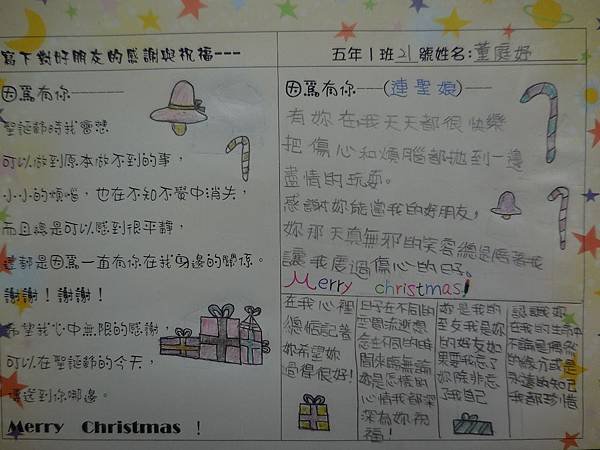 寫下對好朋友的感謝與祝福---
五年1班21號姓名:董庭妤
因為有你---------
聖誕節時我會想
可以做到原本做不到的事,
小小的煩惱,也在不知不覺中消失,
而且總是可以感到很平靜,
這都是因為一直有你在我身邊的關係。
謝謝!謝謝!
希望我心中無限的感謝,
可以在聖誕節的今天,
傳送到你哪邊。
Merry Christmas !
因為有你----(連聖娘)----
有妳在我天天都很快樂
把傷心和煩腦都拋到一邊
盡情的玩耍。
感謝妳能當我的好朋友,
妳那天真無邪的笑容總是
讓我度過傷心的日子。
Merry christmas!
在我心裡
總惦記著
妳希望妳
過得很好!
日子在不同的
空間流逝想
念在不同的時
間來臨無論
妳是怎樣的
心情我都深
深為妳祝
福!
妳是我的
至友我是妳
的好友如
果要我忘了
妳除非忘
了我自己
認識妳
在我的生命中
不論是偶然
的緣分或是
永遠的知己
我都珍惜